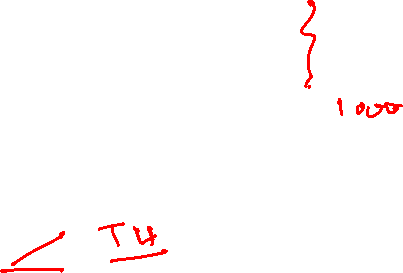 1000
TH